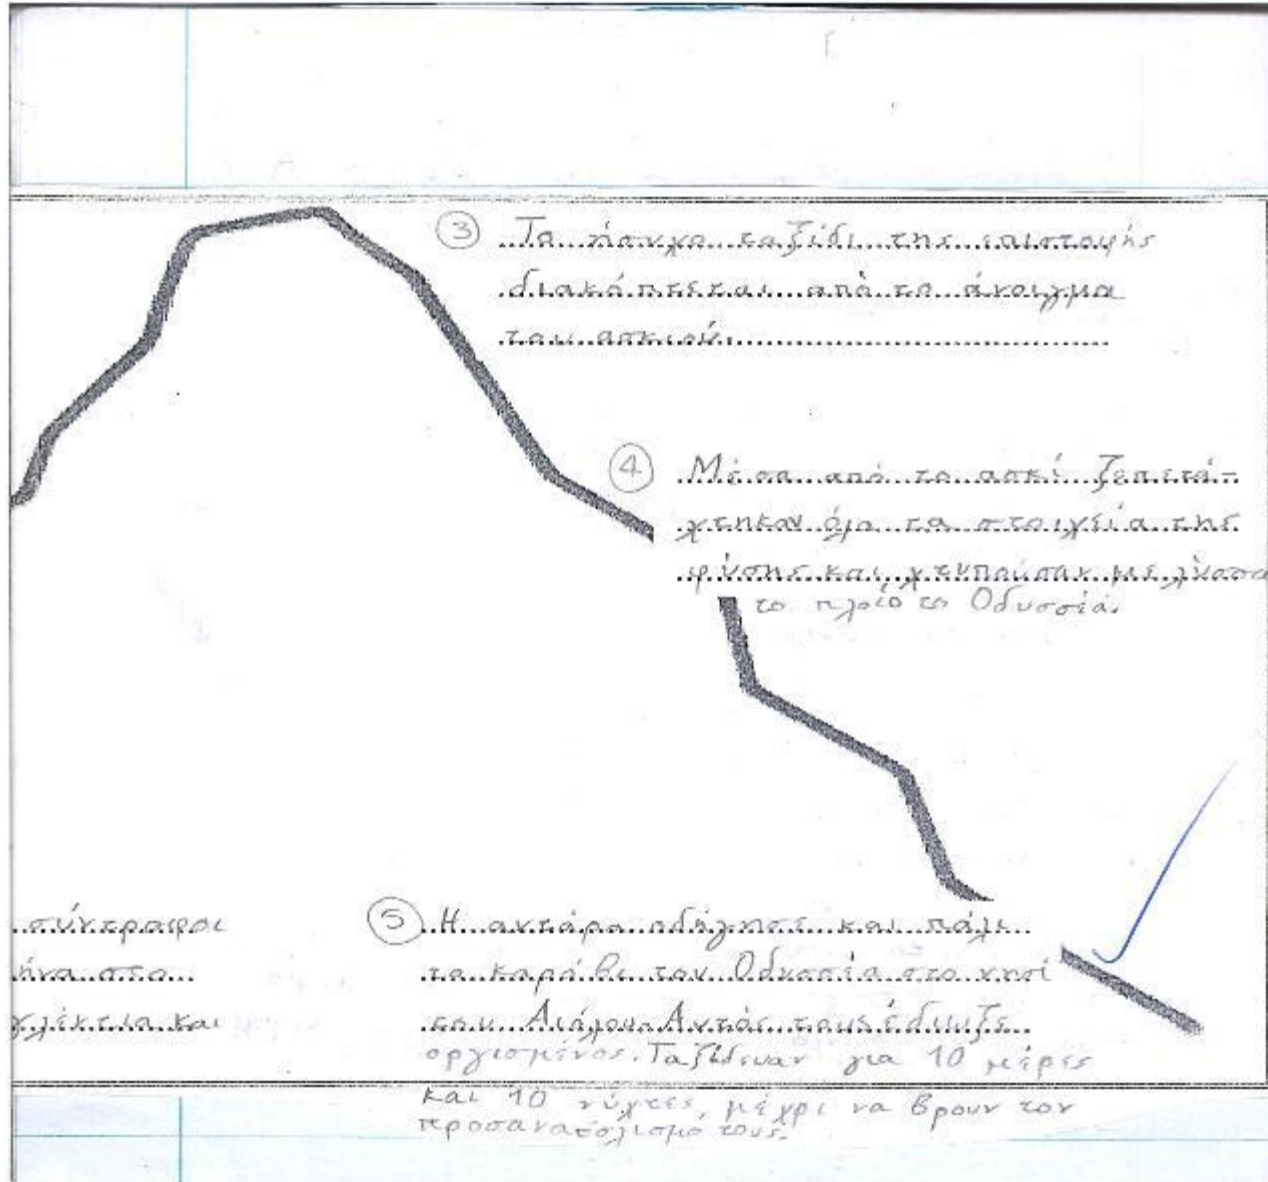 ③ Το ήσυχο ταξίδι της επιστοφής
διακόπτεται από το άνοιγμα
του ασκιού.
④ Μέσα από το ασκί ξεπετά-
χτηκαν όλα τα στοιχεία της
φύσης και χτυπούσαν με λύσσα
το πλοίο το Οδυσσέα.
σύντροφοι
ήνα στο
γλέντια και
⑤ Η αντάρα οδήγησε και πάλι
το καράβι του Οδυσσέα στο νησί
του Αιόλου. Αυτός τους έδιωξε
οργισμένος. Ταξίδευαν για 10 μέρες
και 10 νύχτες, μέχρι να βρουν τον
προσανατολισμό τους.